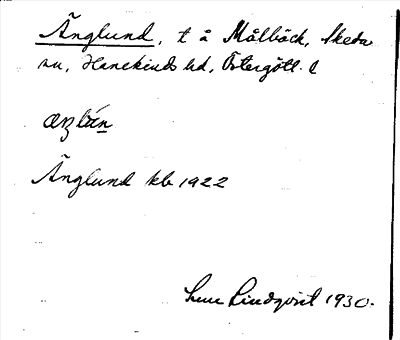 Änglund, t å Målbäck, Skeda
sn, Hanekinds hd, Östergötl. l
Änglund kb 1922
Lindqvist 1930.